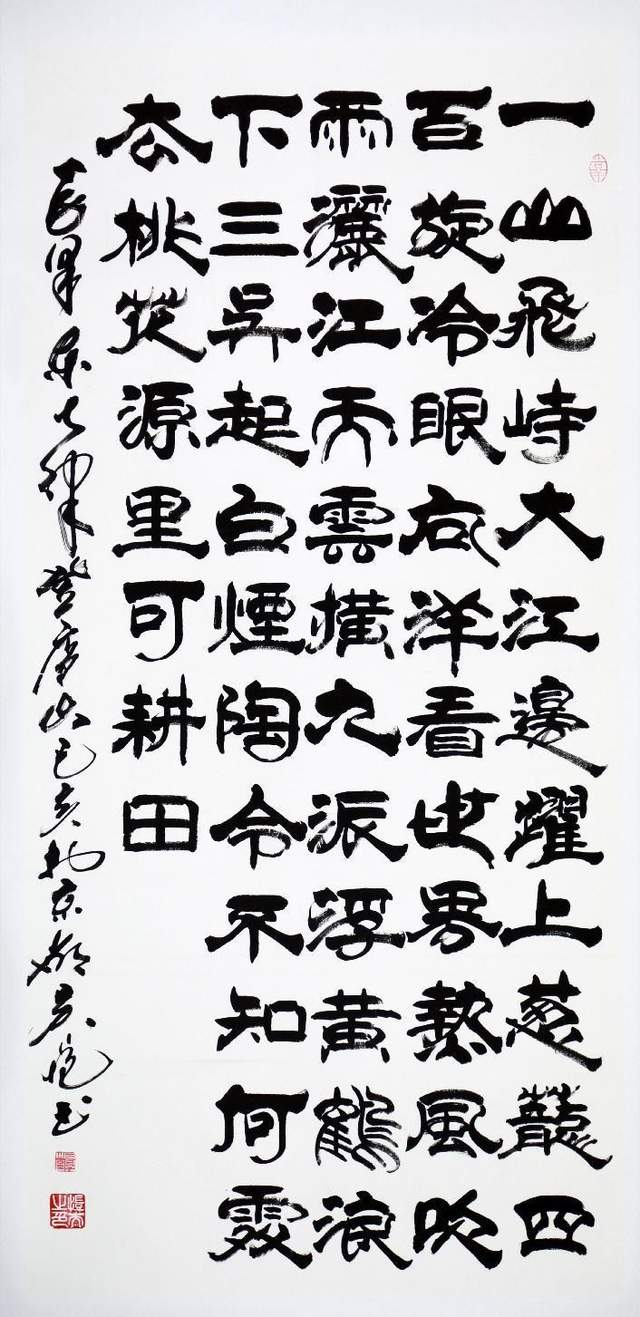 一山飛峙大江邊躍上葱蘢四
百旋冷眼向洋看世界熱風吹
雨灑江天雲橫九派浮黃鶴浪
下三吳起白煙陶令不知何處
去桃花源里可耕田
毛澤东七律登庐山己亥於京都书